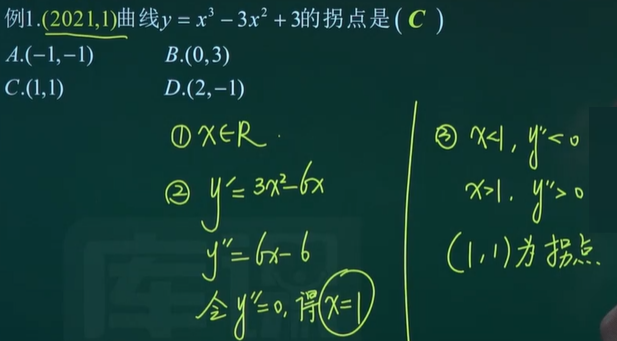 例1.(2021,1)曲线y = x³ − 3x² + 3的拐点是( C )
A.(−1,−1) B.(0,3)
C.(1,1) D.(2,−1)
① x∈R.
② y′=3x²−6x
y″=6x−6
令y″=0,得x=1
③ x<1, y″<0
x>1, y″>0
(1,1)为拐点.